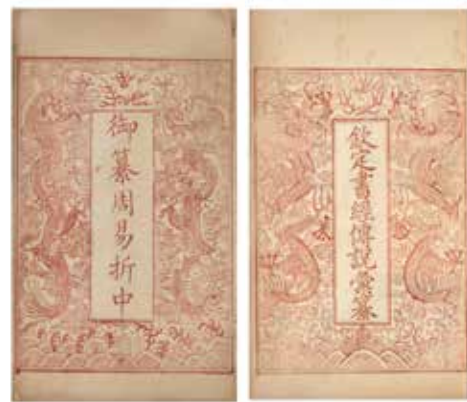 御纂周易折中
欽定書經傳說彙纂